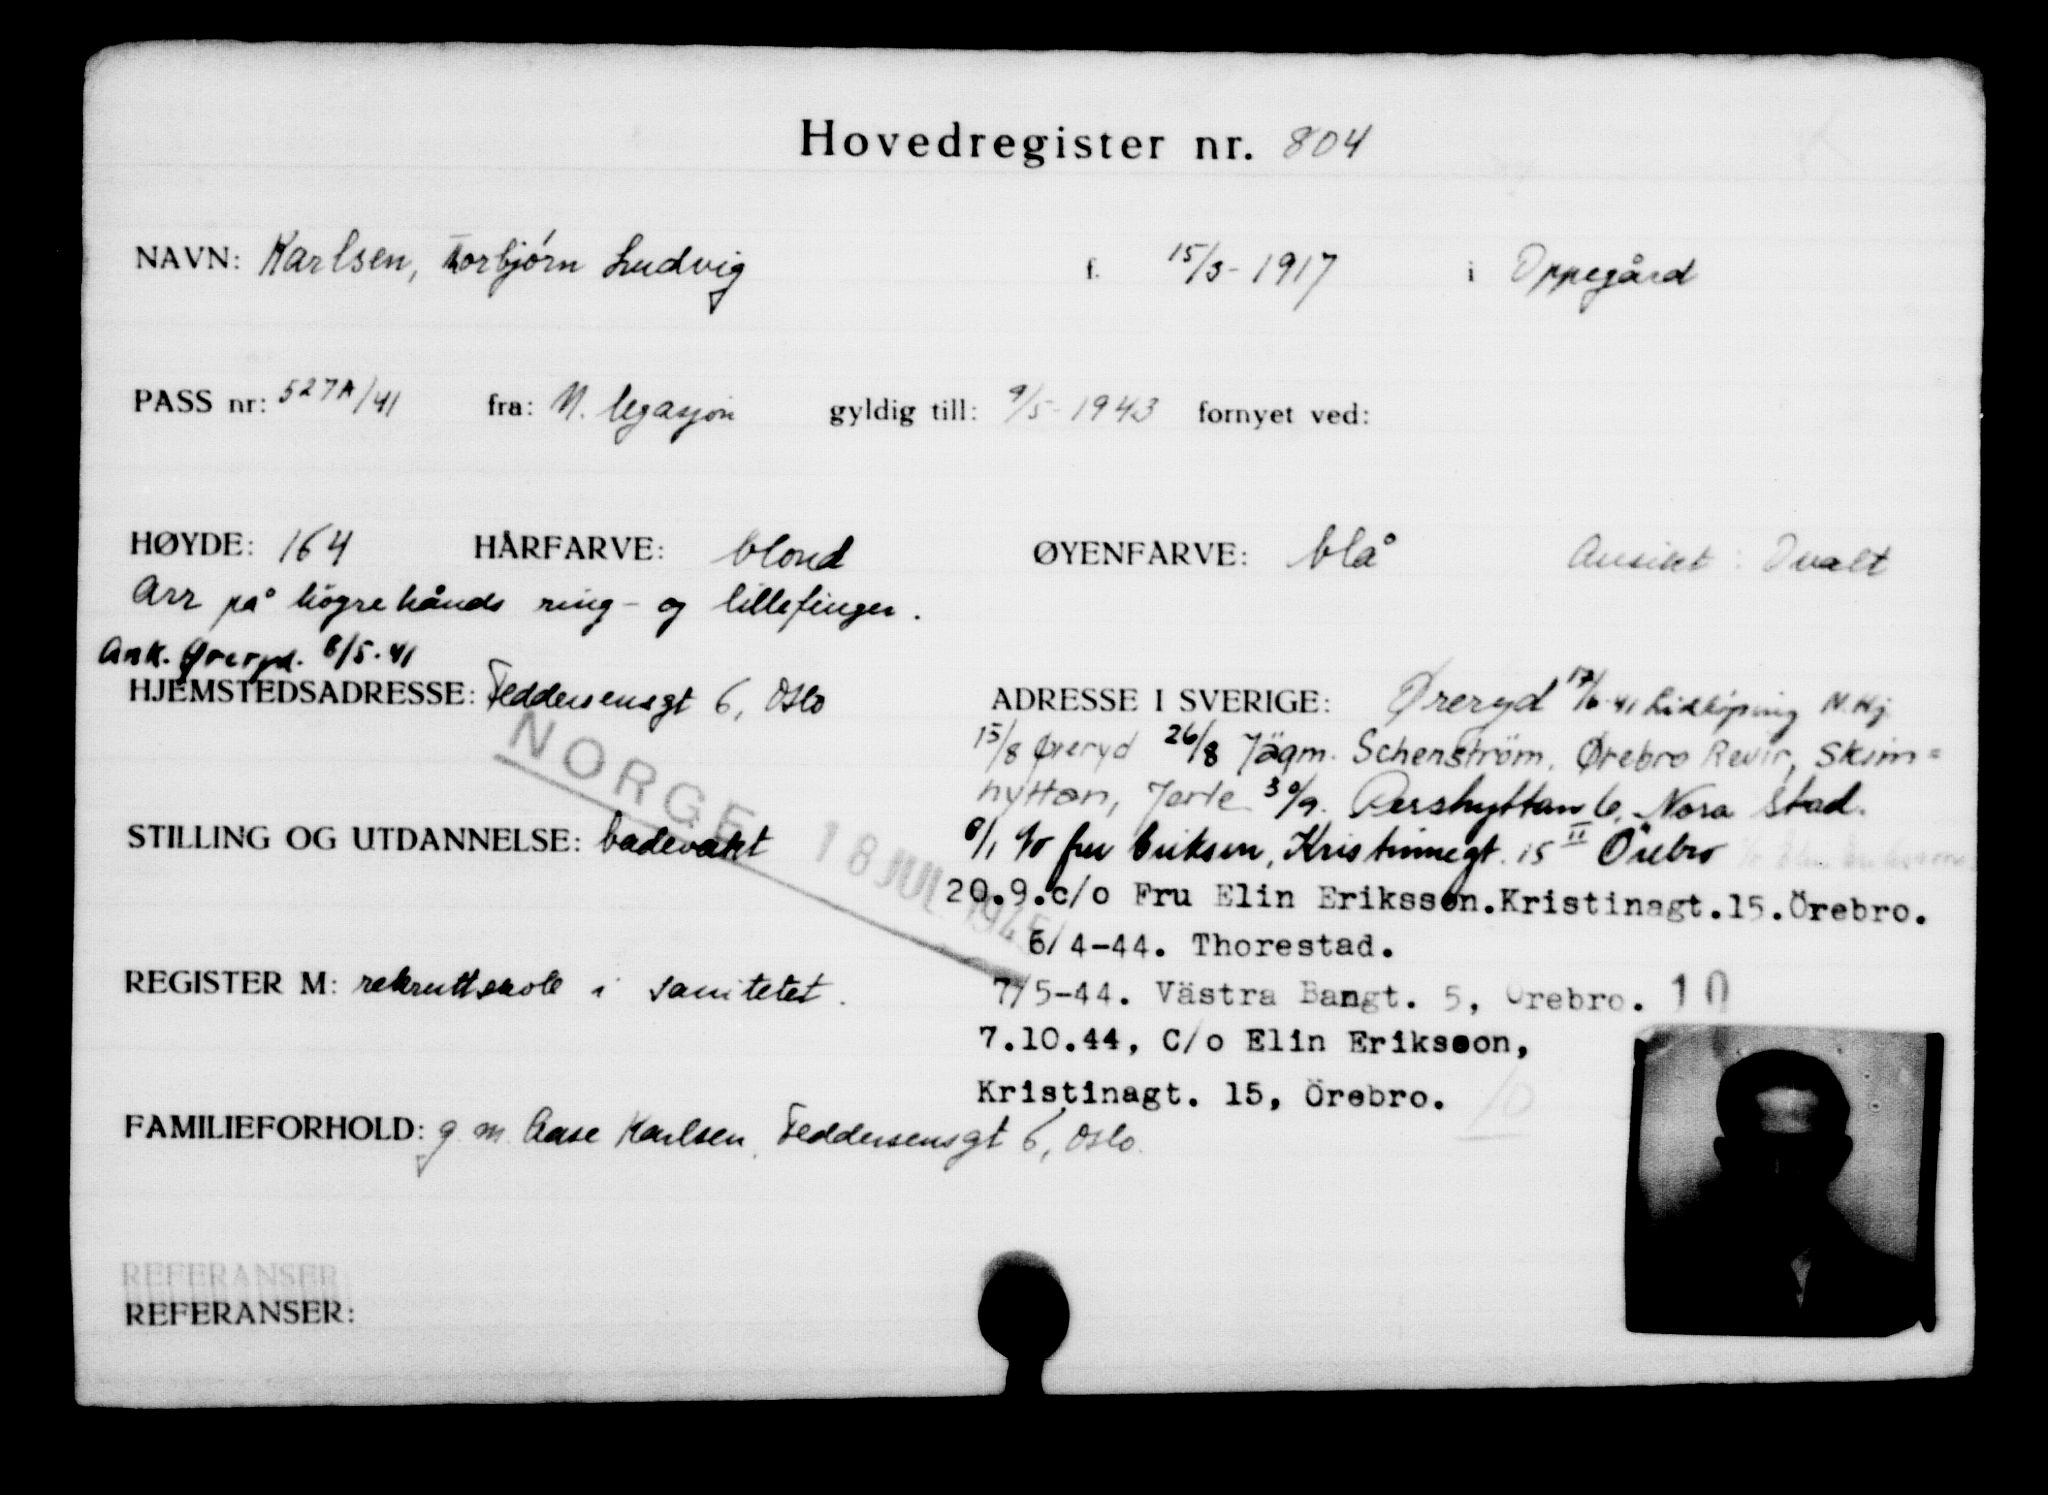 Hovedregister nr. 804
NAVN: Karlsen, Torbjörn Ludvig f. 15/3-1917 i Oppegård
PASS nr: 527A/41 fra: N. legasjon gyldig till: 9/5-1943 fornyet ved:
HØYDE: 164 HÅRFARVE: blond ØYENFARVE: blå Ansikt: Ovalt
Arr på högre hånds ring- og lillefinger.
Ank. Øreryd. 8/5-41
HJEMSTEDSADRESSE: Feddersensgt 6, Oslo
ADRESSE I SVERIGE: Øreryd 17/6-41 Lidköping N.Hj.
15/8 Øreryd 26/8 Jägm. Schenström, Ørebro Revir, Skim=
hyttan, Jerle 30/9. Pershyttan 6, Nora Stad.
NORGE 18 JUL 1945
STILLING OG UTDANNELSE: badevakt
8/1 c/o fru Eriksen, Kristinnegt. 15 II Örebro
20.9.c/o Fru Elin Eriksson.Kristinagt.15.Örebro.
6/4-44. Thorestad.
REGISTER M: rekruttskole i sanitetet.
7/5-44. Västra Bangt. 5, Örebro. 10
7.10.44, C/o Elin Eriksson,
Kristinagt. 15, Örebro. 10
FAMILIEFORHOLD: g. m. Aase Karlsen, Feddersensgt 6, Oslo.
REFERANSER
REFERANSER: